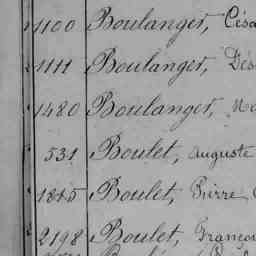 1100 Boulanger, Césa
1111 Boulanger, Dés
1480 Boulanger,
531 Boulet, Auguste
1815 Boulet, Pierre
2198 Boulet, Françoi